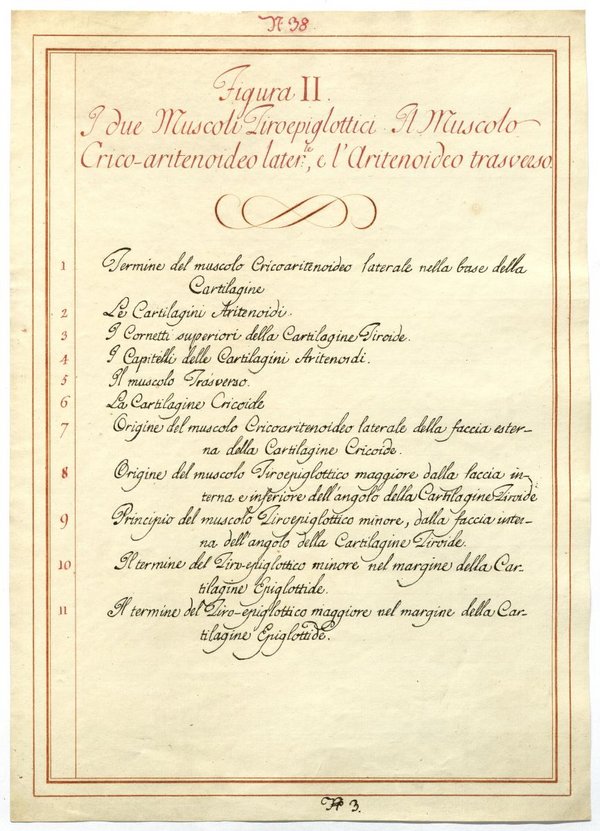 N. 38.
Figura II.
I due Muscoli Tiroepiglottici. Il Muscolo
Crico-aritenoideo later.le, e l'Aritenoideo trasverso.
1 Termine del muscolo Cricoaritenoideo laterale nella base della
Cartilagine
2 Le Cartilagini Aritenoidi.
3 I Cornetti superiori della Cartilagine Tiroide.
4 I Capitelli delle Cartilagini Aritenoidi.
5 Il muscolo Trasverso.
6 La Cartilagine Cricoide
7 Origine del muscolo Cricoaritenoideo laterale della faccia ester-
na della Cartilagine Cricoide.
8 Origine del muscolo Tiroepiglottico maggiore dalla faccia in-
terna e inferiore dell'angolo della Cartilagine Tiroide
9 Principio del muscolo Tiroepiglottico minore, dalla faccia inter-
na dell'angolo della Cartilagine Tiroide.
10 Il termine del Tiro-epiglottico minore nel margine della Car-
tilagine Epiglottide.
11 Il termine del Tiro-epiglottico maggiore nel margine della Car-
tilagine Epiglottide.
3.